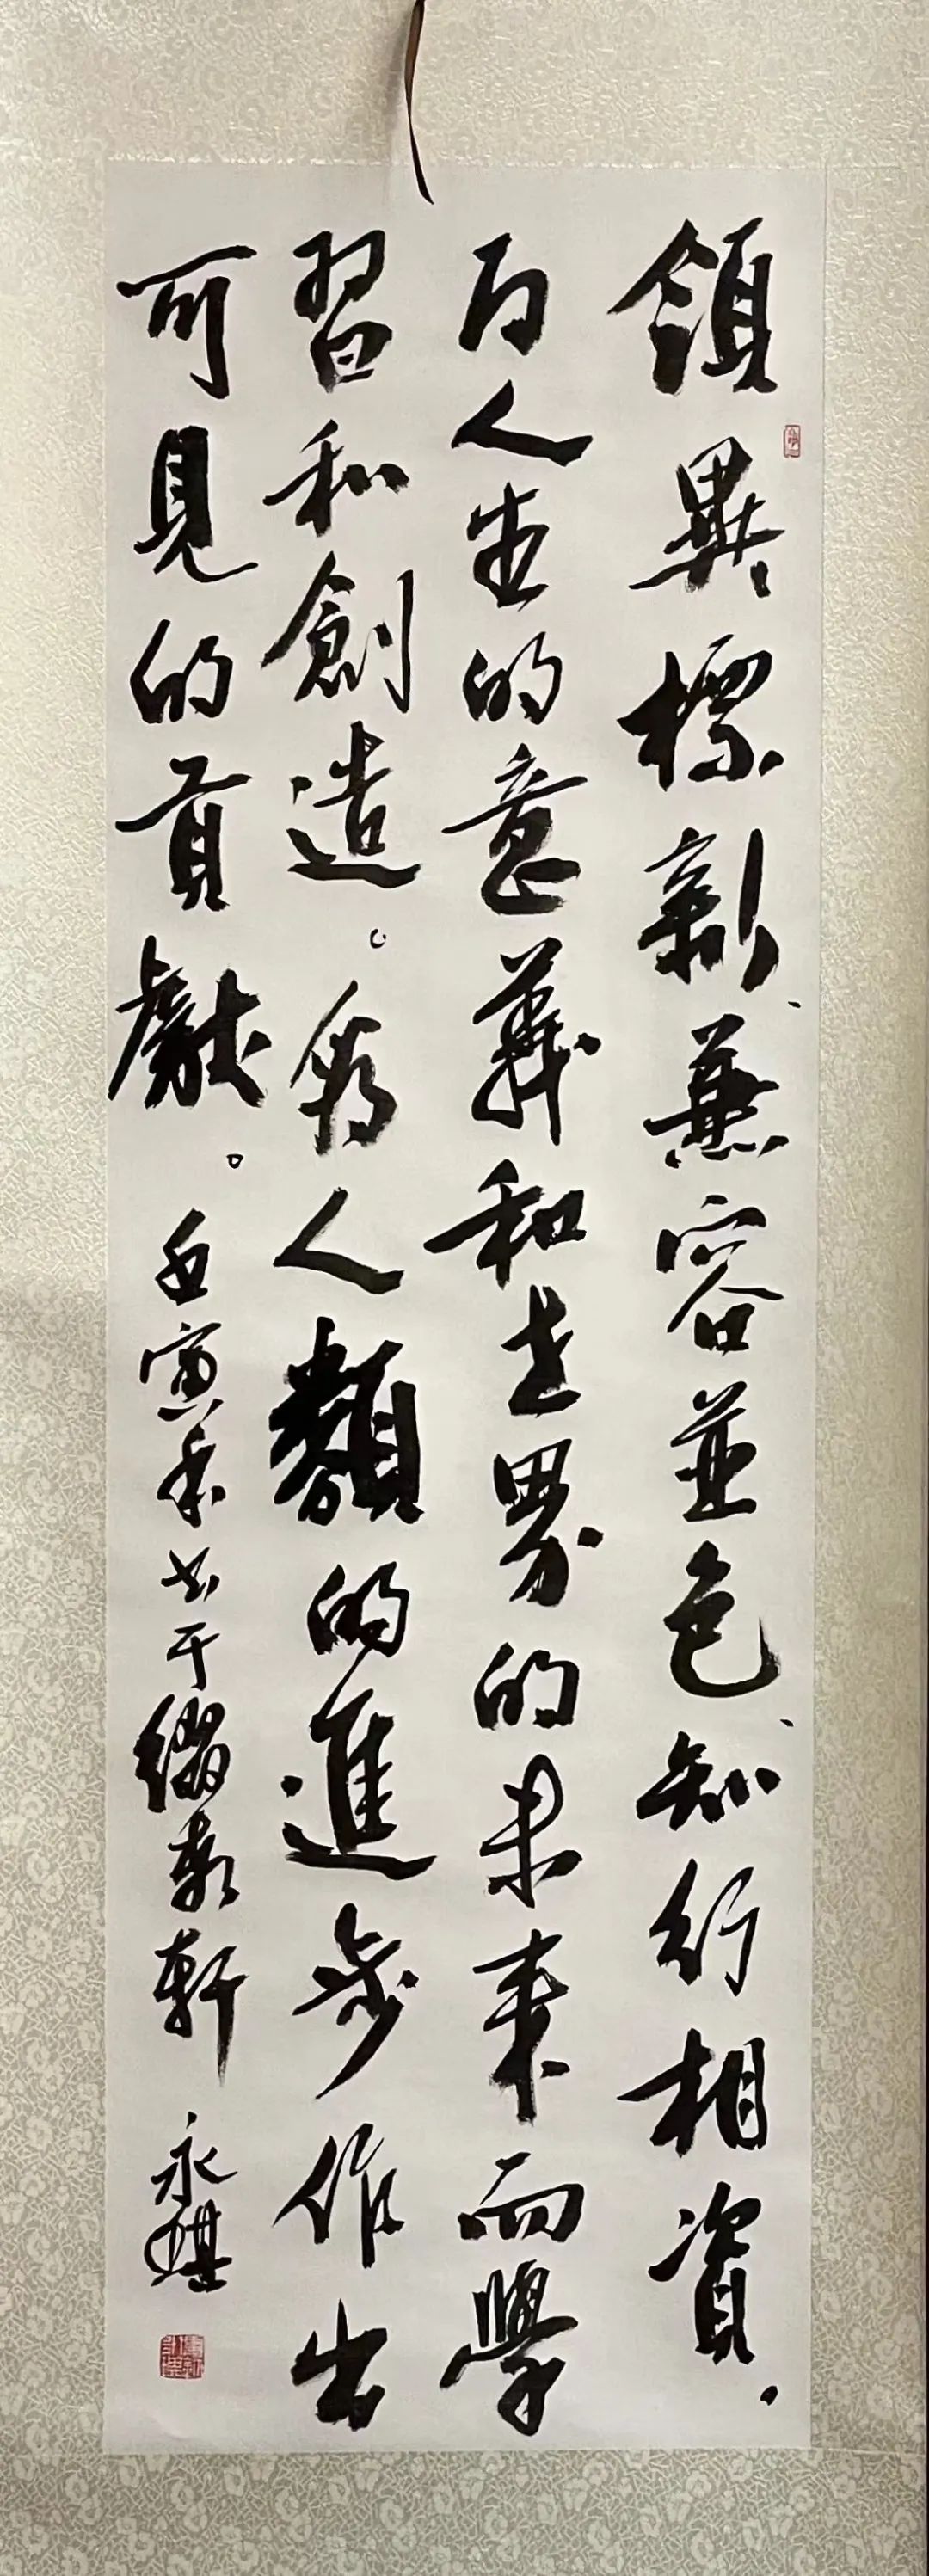 領異標新、兼容並包、知行相資.
为人生的意義和世界的未来而學
習和創造。為人類的進步作出
可見的貢獻。壬寅年书于缀英轩 永